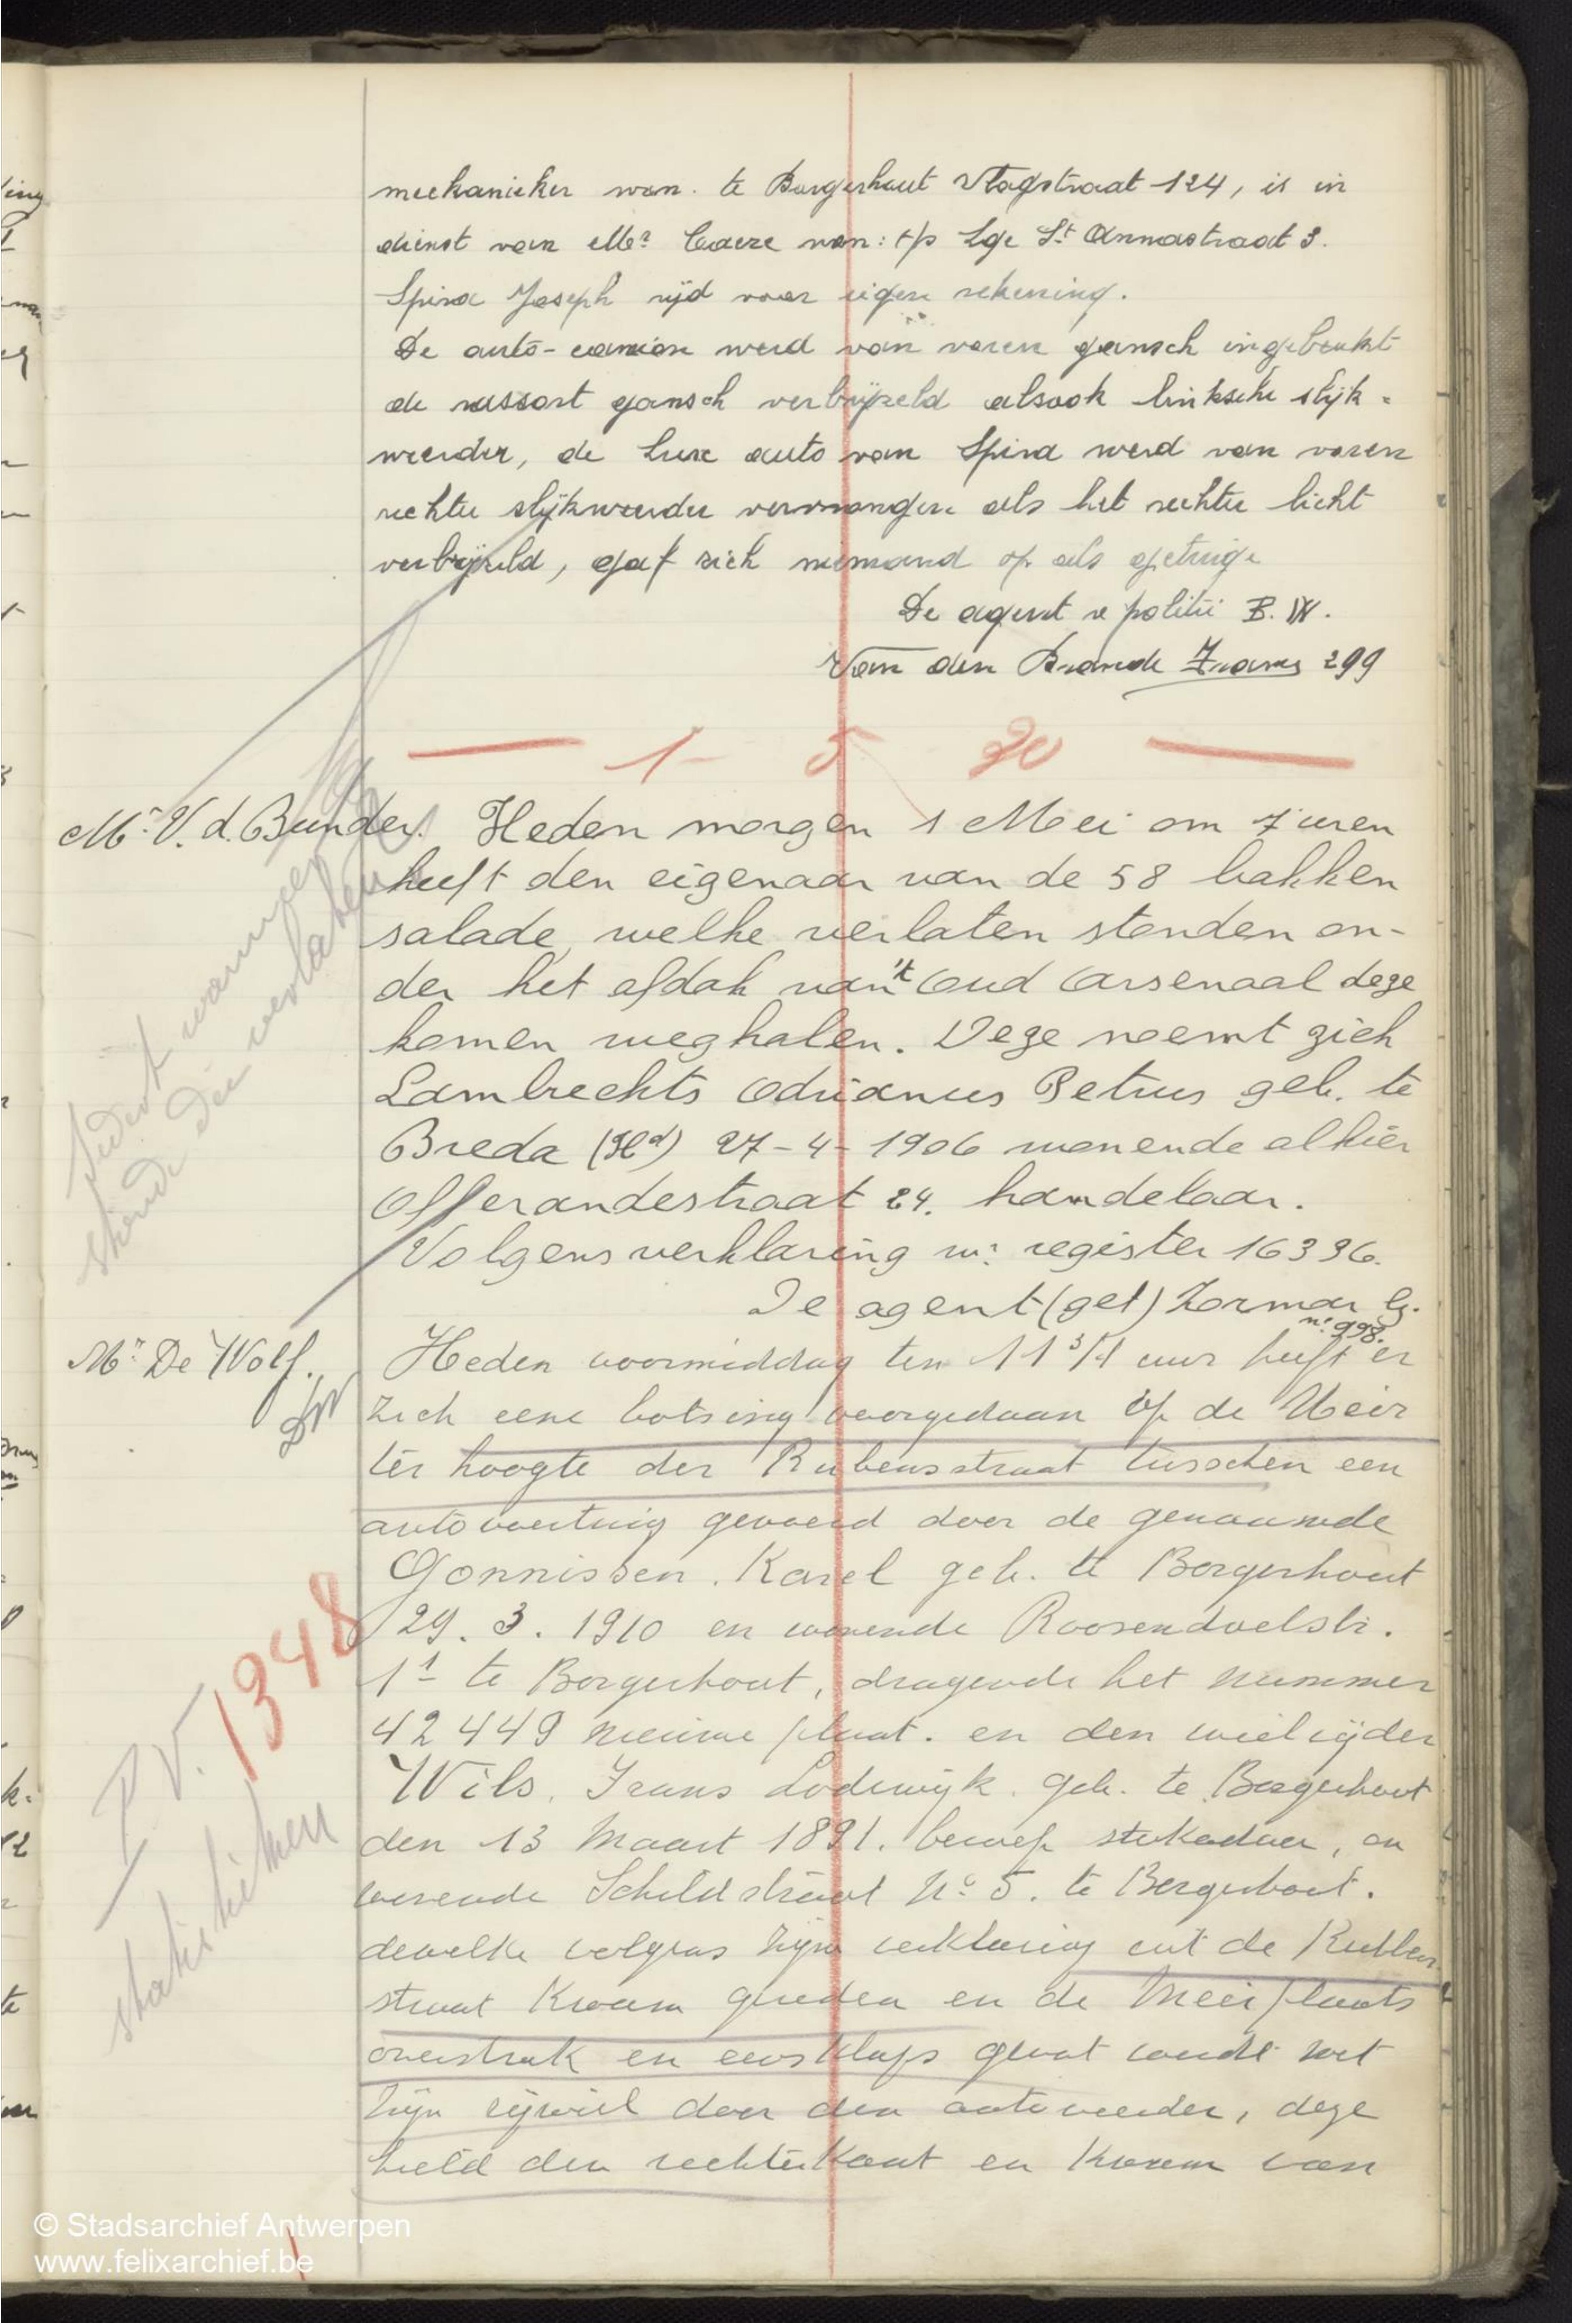 mechanieker won. te Borgerhout Vlagstraat 124, is in
dienst van Mr won: t/p Lge St Annastraat 3.
Spira Joseph rijd voor eigen rekening.
De auto-camion werd van voren gansch ingebeukt
de ressort gansch verbrijzeld alsook linksche slijk-
weerder, de luxe auto van Spira werd van voren
rechter slijkweerder vervrongen als het rechter licht
verbrijzeld, gaf zich niemand op als getuige
De agent v politie B.W.
Van den Brande Frans 299
1 - 5 30
Mr V. d. Bunder. Heden morgen 1 Mei om 7 uren
heeft den eigenaar van de 58 bakken
salade, welke verlaten stonden on-
der het afdak van 't Oud Arsenaal deze
komen weghalen. Deze noemt zich
Lambrechts Adrianus Petrus geb. te
Breda (Hd) 27-4-1906 wonende alhier
Offerandestraat 24. handelaar.
Volgens verklaring nr register 16396.
De agent (get) G.
n° 998.
Mr De Wolf. Heden voormiddag ten 11 3/4 uur heeft er
zich eene botsing voorgedaan op de Meir
ter hoogte der Rubensstraat tusschen een
autovoertuig gevoerd door de genaamde
Gonnissen. Karel geb. te Borgerhout
29. 3. 1910 en wonende Roosendaelstr.
11 te Borgerhout, dragende het nummer
42449 nieuwe plaat. en den wielrijder
Wils. Frans Lodewijk. geb. te Borgerhout
den 13 Maart 1891. beroep stukadoor, en
wonende Schildstraat N° 5. te Borgerhout.
dewelke volgens zijne verklaring uit de Rubbens
straat kwam gereden en de Meirplaats
overstrak en eensklaps gevat werdt met
zijn rijwiel door den autovoerder, deze
hield den rechterkant en kwam van
P.V. 1348
© Stadsarchief Antwerpen
www.felixarchief.be